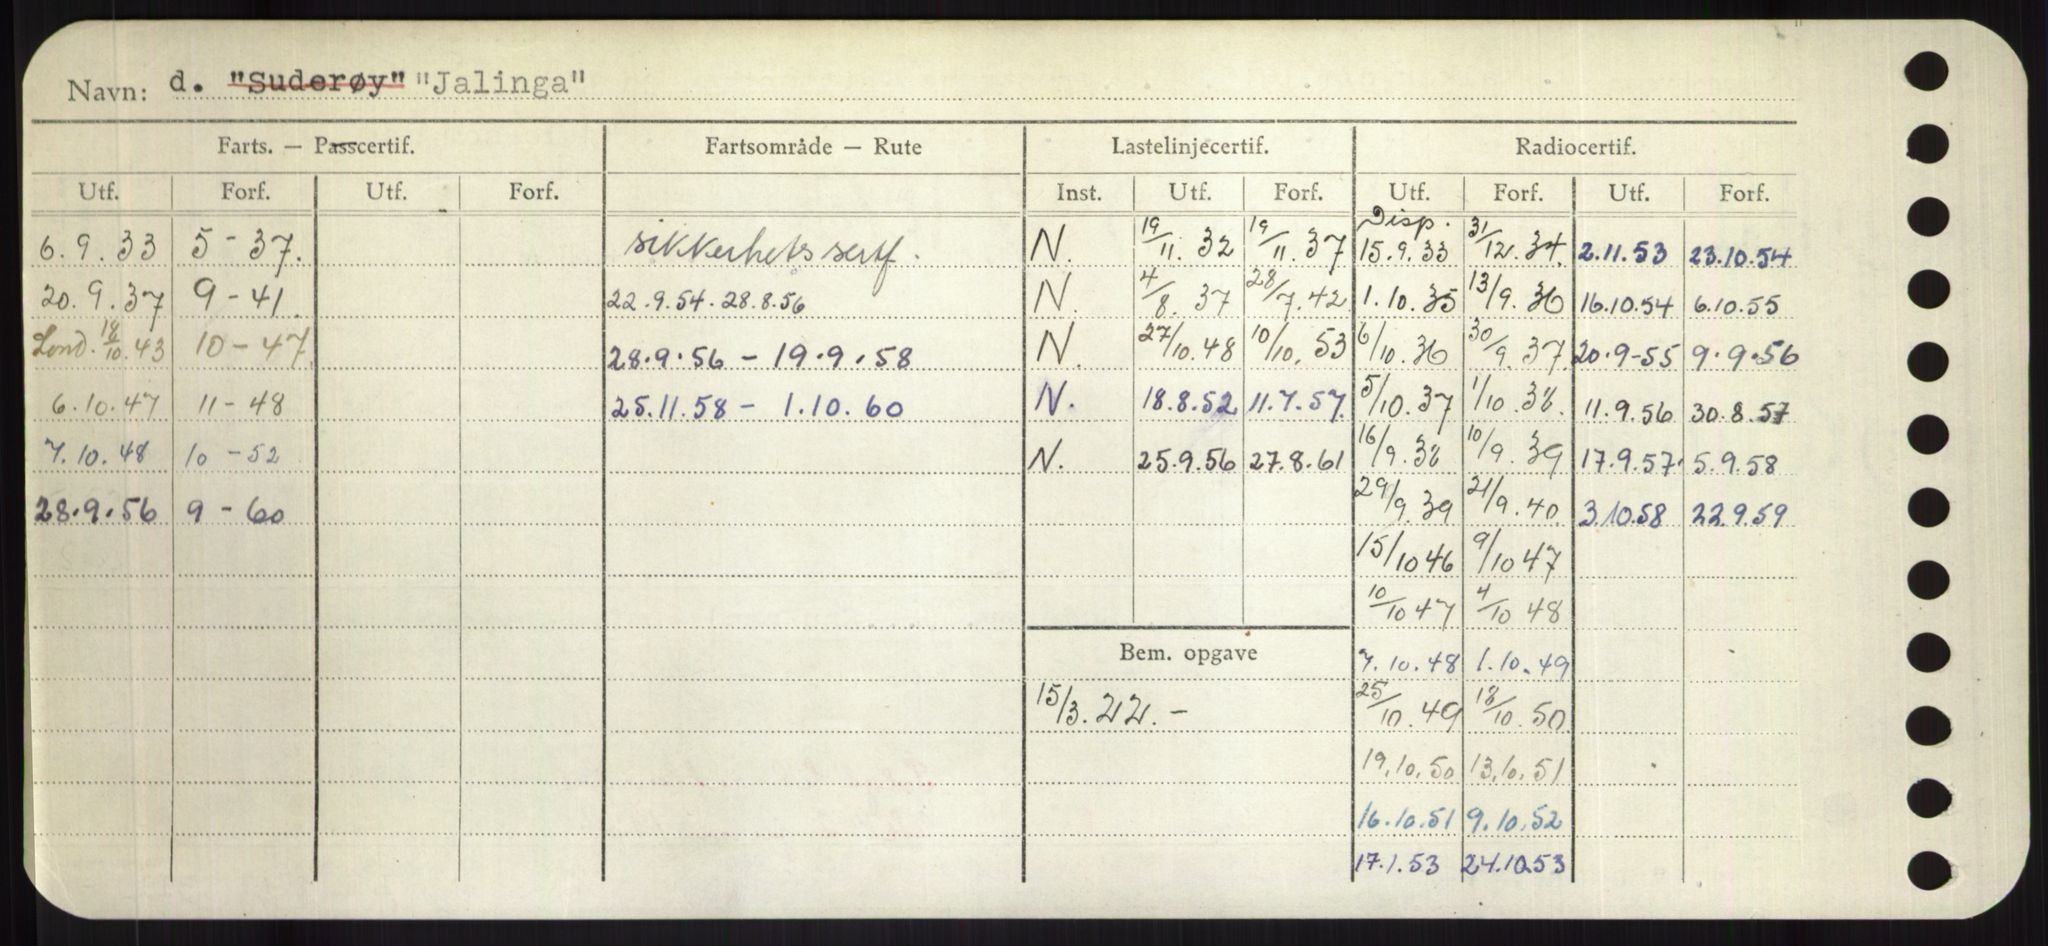 Navn: d. "Suderøy" "Jalinga"
Farts. — Passcertif. Fartsområde — Rute Lastelinjecertif. Radiocertif.
Utf. Forf. Utf. Forf. Inst. Utf. Forf. Utf. Forf. Utf. Forf.
6.9.33 5-37. sikkerhetssertf. N. 19/11.32 19/11.37 Disp. 15.9.33 31/12.34. 2.11.53 23.10.54
20.9.37 9-41. 22.9.54.28.8.56 N. 4/8.37 28/7.42 1.10.35 13/9.36 16.10.54 6.10.55
Lond. 18/10.43 10-47. 28.9.56 - 19.9.58 N. 27/10.48 10/10.53 6/10.36 30/9.37. 20.9-55 9.9.56
6.10.47 11-48 25.11.58 - 1.10.60 N. 18.8.52 11.7.57. 5/10.37 1/10.38. 11.9.56 30.8.57
7.10.48 10-52 N. 25.9.56 27.8.61 16/9.38 10/9.39 17.9.57. 5.9.58
28.9.56 9-60 29/9.39 21/9.40. 3.10.58 22.9.59
15/10 46 9/10 47
10/10 47 4/10 48
Bem. opgave 7.10.48 1.10.49
15/3.22.- 25/10.49 18/10.50
19.10.50 13.10.51
16.10.51 9.10.52
17.1.53 24.10.53